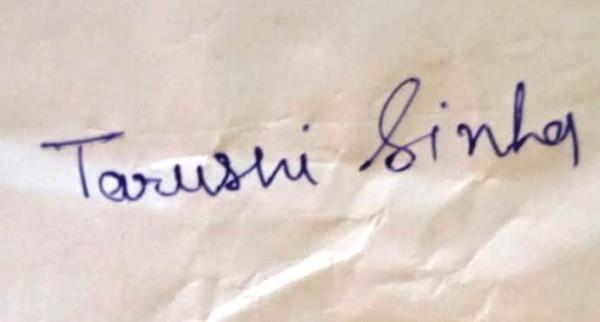 Tarushi Sinha